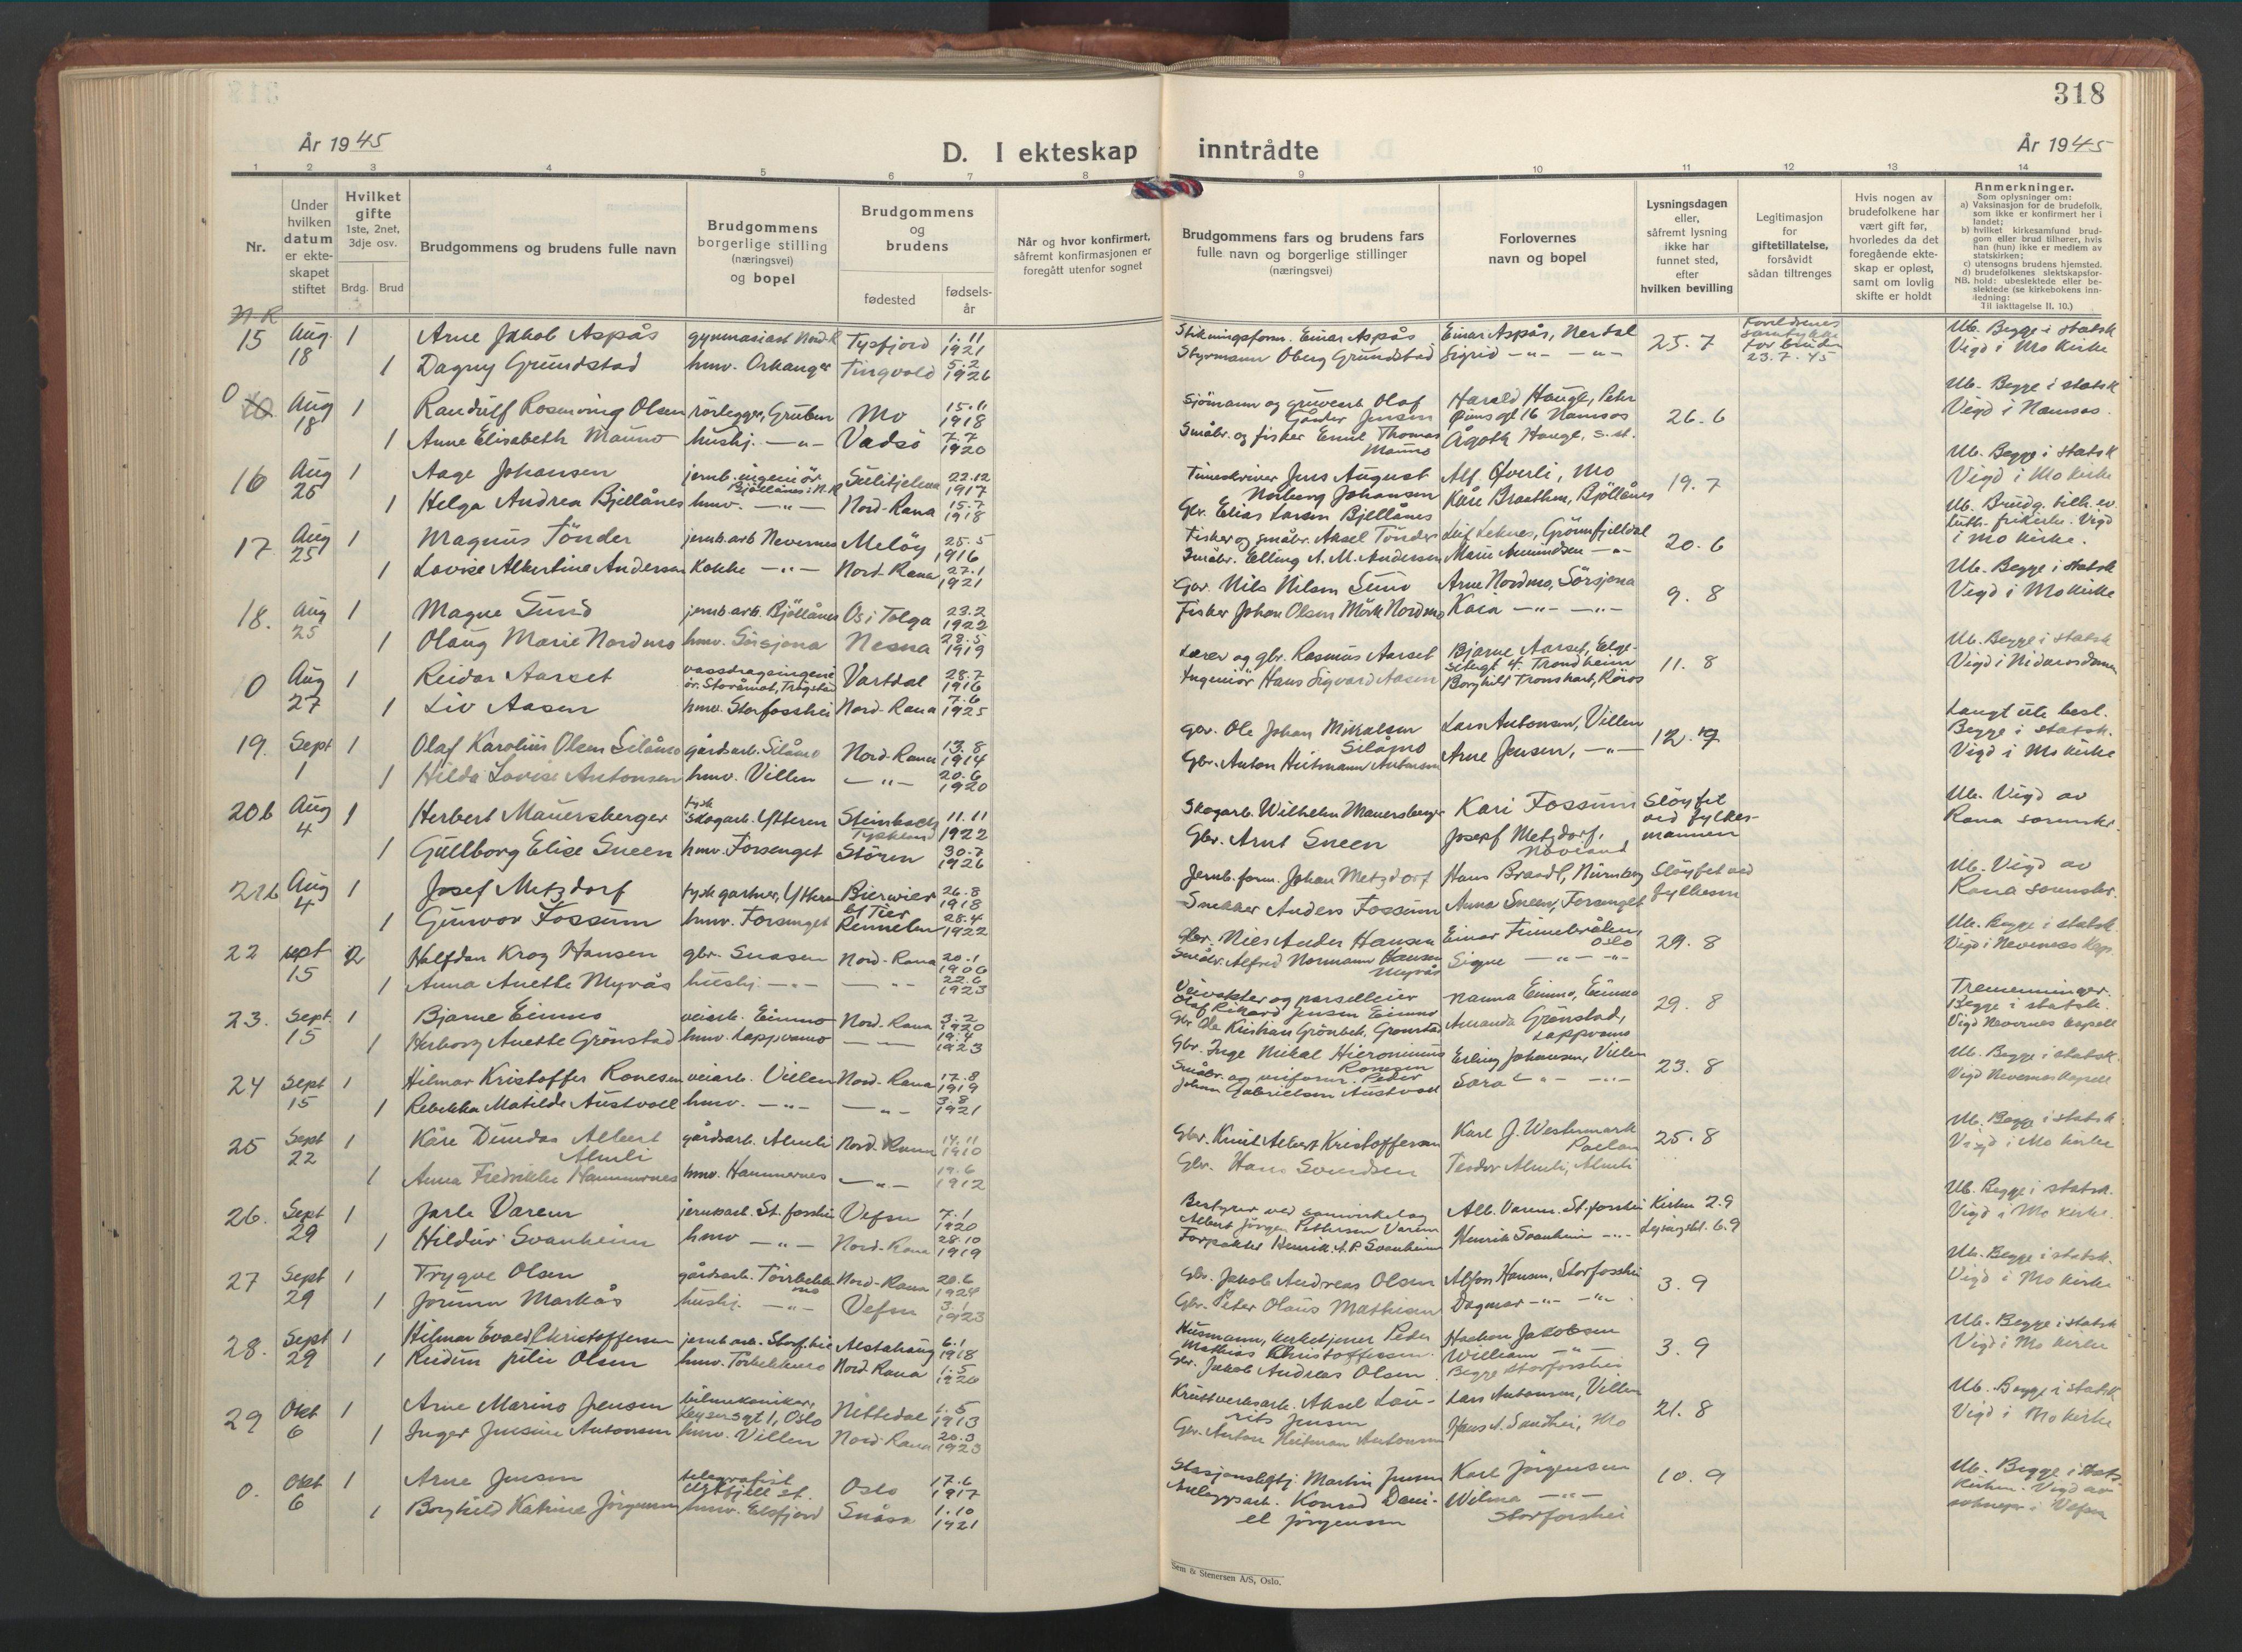 318
År 1945
D. I ekteskap inntrådte
År 1945
1 2 3 4 5 6 7 8 9 10 11 12 13 14
Nr.
Under hvilken datum er ekteskapet stiftet
Hvilket gifte 1ste, 2net, 3dje osv.
Brdg. Brud
Brudgommens og brudens fulle navn
Brudgommens borgerlige stilling (næringsvei) og bopel
Brudgommens og brudens
fødested
fødselsår
Når og hvor konfirmert, såfremt konfirmasjonen er foregått utenfor sognet
Brudgommens fars og brudens fars fulle navn og borgerlige stillinger (næringsvei)
Forlovernes navn og bopel
Lysningsdagen eller, såfremt lysning ikke har funnet sted, efter hvilken bevilling
Legitimasjon for giftetillatelse, forsåvidt sådan tiltrenges
Hvis nogen av brudefolkene har vært gift før, hvorledes da det foregående ekteskap er opløst, samt om lovlig skifte er holdt
Anmerkninger.
Som oplysning om:
a) Vaksinasjon for de brudefolk, som ikke er konfirmert her i landet;
b) hvilket kirkesamfund brudgom eller brud tilhører, hvis han (hun) ikke er medlem av statskirken;
c) utensogns brudens hjemsted.
d) brudefolkenes slektskapsforhold: ubeslektede eller beslektede (se kirkebokens innledning:
NB.
Til iakttagelse II. 10.)
N-R
15 Aug 18 1 Arne Jakob Aspås gymnasiast Nord-R Tysfjord 1.11 1921 Einar Aspås Einar Aspås, 25.7 Foreldrenes samtykke for bruden 23.7.45 Ub. Begge i statsk
1 Dagny Grundstad hmv. Orkanger Tingvold 5.2 1926 Styrmann Oberg Grundstad Sigrid -"- -"- Vigd i Mo Kirke
0 Aug 18 1 Randulf Rosenving Olsen rørlegger, Gruben Mo 15.11 1918 Sjömann og gruvearb Olaf Jensen Harald Haugl, Peter gt 16 Namsos 26.6 Ub. Begge i statsk
1 Anne Elisabeth Mauno hushj. -"- Vadsö 7.7 1920 Småbr. og fisker Emil Thomas Mauno Ågoth Haugl, s.st. Vigd i Namsos.
16 Aug 25 1 Aage Johansen jernb.ingeniör Bjöllånes i N.R Sulitjelma 22.12 1917 Jens August Norberg Johansen Alf Överli, Mo 19.7 Ub. Begge i statsk
1 Helga Andrea Bjellånes hmv. -"- Nord-Rana 15.7 1918 Gbr. Elias Larsen Bjellånes Kåre Braathen, Bjöllånes Vigd i Mo kirke
17 Aug 25 1 Magnus Tönder jernb.arb Nevernes Melöy 25.5 1916 Fisker og småbr. Aksel Tönder Leif Leknes, Grönnfjelldal 20.6 Ub. Brudg. tilh. ev. luth. frikirke. Vigd i Mo kirke.
1 Lovise Albertine Andersen Kokke -"- Nord-Rana 27.1 1921 Småbr. Elling A. M. Andersen Marie Amundsen -"-
18. Aug 25 1 Magne Sund jernb.arb. Bjöllånes Os i Tolga 23.2 1922 Gbr. Nils Nilsen Sund Arne Nordmo, Sörsjona 9.8 Ub. Begge i statsk
1 Olaug Marie Nordmo hmv. Sörsjona Nesna 28.5 1919 Fisker Johan Olsen Mörk Nordmo Kara -"- -"- Vigd i Mo kirke
0 Aug 27 1 Reidar Aarset vassdragsingeniör. Vartdal 28.7 1916 Lærer og gbr. Rasmus Aarset Bjarne Aarset, Elgesetergt 4. Trondheim 11.8 Ub. Begge i statsk
1 Liv Aasen hmv. Storfosshei Nord-Rana 7.6 1925 Ingeniör Hans Sigvard Aasen Borghild Tronshart, Röros Vigd i Nidarosdomen
19. Sept 1 1 Olaf Karolius Olsen Silåmo gårdsarb. Silåmo Nord-Rana 13.8 1914 Gbr. Ole Johan Mikkalsen Silåmo Lars Antonsen, Villen 12.7 Langt ute besl. Begge i statsk.
1 Hilda Lovise Antonsen hmv. Villen -"- 20.6 1920 Gbr. Anton Heitmann Antonsen Arne Jensen, -"- Vigd i Mo kirke
20b Aug 4 1 Herbert Mauersberger tysk skogarb. Ytteren Steinbach Tyskland 11.11 1922 Skogarb. Wilhelm Mauersberger Kari Fossum Slöyfet ved fylkesmannen Ub. Vigd av
1 Gullborg Elise Sneen hmv. Forsenget Stören 30.7 1926 Gbr. Arnt Sneen Josef Metzdorf, Rana sorenskr.
21b Aug 4 1 Josef Metzdorf tysk gartner, Ytteren Bierwier bt Tier 26.8 1918 Jernb.form. Johan Metzdorf Hans Brandl, Nürnberg Slöyfet ved fylkesm Ub. Vigd av
1 Gunvor Fossum hmv. Forsenget Rennebu 28.4 1922 Snekker Anders Fossum Anna Sneen, Forsenget Rana sorenskr.
22 Sept 15 2 Halfdan Krog Hansen gbr. Snasen Nord-Rana 20.1 1906 Gbr. Nils Ander Hansen Einar Finnebråten Oslo 29.8 Ub. Begge i statsk.
1 Anna Anette Myrås hushj. -"- -"- 22.6 1923 Småbr. Alfred Normann Hansen Myrås Signe -"- -"- Vigd i Nevernes Kap.
23. Sept. 15 1 Bjarne Einmo veiarb. Einmo Nord-Rana 3.2 1920 Veivokter og parselleier Olaf Rikard Jensen Einmo Nanna Einmo, Einmo 29.8 Tremenninger. Begge i statsk.
1 Herborg Anette Grönstad hmv. Lappvamo -"- 19.4 1923 Gbr Ole Kristian Grönbek Grönstad Amanda Grönstad, Lappvamo Vigd Nevernes kapell
24 Sept 15 1 Hilmar Kristoffer Ronesen veiarb. Villen Nord-Rana 17.8 1919 Gbr. Inge Mikal Hieronimus Ronesen Erling Johansen, Villen 23.8 Ub. Begge i statsk.
1 Rebekka Matilde Austvoll hmv. -"- -"- 3.8 1921 Småbr. og Peder Johan Gabrielsen Austvoll Sara -"- -"- Vigd Nevernes kapell
25 Sept 22 1 Kåre Dundas Albert Almli gårdsarb. Almli Nord-Rana 14.11 1910 Gbr. Knut Albert Kristoffersen Karl J. Westermark 25.8 Ub. Begge i statsk.
1 Anna Fredrikke Hammernes hmv. Hammernes -"- 19.6 1912 Gbr. Hans Svendsen Teodor Almli, Almli Vigd i Mo kirke
26. Sept 29 1 Jarle Varem jernverkarb. St.forshei Vefsn 7.1 1920 Bestyrer ved samvirkelag Albert Jörgen Pettersen Varem Alb. Varem. St.forshei Kirken 2.9 Ub. Begge i statsk.
1 Hildur Svanheim hmv -"- Nord-Rana 28.10 1919 Forpakter Henrik A.P. Svanheim Henrik Svanheim -"- 6.9 Vigd i Mo kirke.
27 Sept 29 1 Trygve Olsen gårdsarb. Nord-Rana 20.6 1924 Gbr. Jakob Andreas Olsen Alfon Hansen, Storfosshei 3.9 Ub. Begge i statsk.
1 Jorunn Markås hushj. -"- Vefsn 3.1 1923 Gbr. Peter Olaus Mathisen Dagmar -"- -"- Vigd i Mo kirke
28. Sept 29 1 Hilmar Evald Christoffersen jernb.arb. Storf.hei Alstahaug 6.1 1918 Husmann, kirketjener Peder Mathias Christoffersen. Haakon Jakobsen 3.9 Ub. Begge i statsk
1 Reidun Julie Olsen hmv. Nord Rana 1.5 1926 Gbr. Jakob Andreas Olsen. William -"- Begge Storforshei Vigd i Mo kirke
29 Okt 6 1 Arne Marino Jensen bilmekaniker, Keysersgt 1, Oslo Nittedal 1.5 1913 Kruttverksarb. Aksel Laurits Jensen Lars Antonsen, Villen 21.8 Ub. Begge i statsk
1 Inger Jensine Antonsen hmv. Villen Nord-Rana 20.3 1923 Gbr. Anton Heitman Antonsen Hans A. Sandhei, Mo Vigd i Mo kirke
0. Okt 6 1 Arne Jensen telegrafist Oslo 17.6 1917 Martin Jensen Karl Jörgensen 10.9 Ub. Begge i statskirken. Vigd av
1 Borghild Katrine Jörgensen hmv. Elsfjord Snåsa 1.10 1921 Anleggsarb. Konrad Daniel Jörgensen Wilma -"- Storforshei sokneprs i Vefsn
Sem & Stenersen A/S, Oslo.